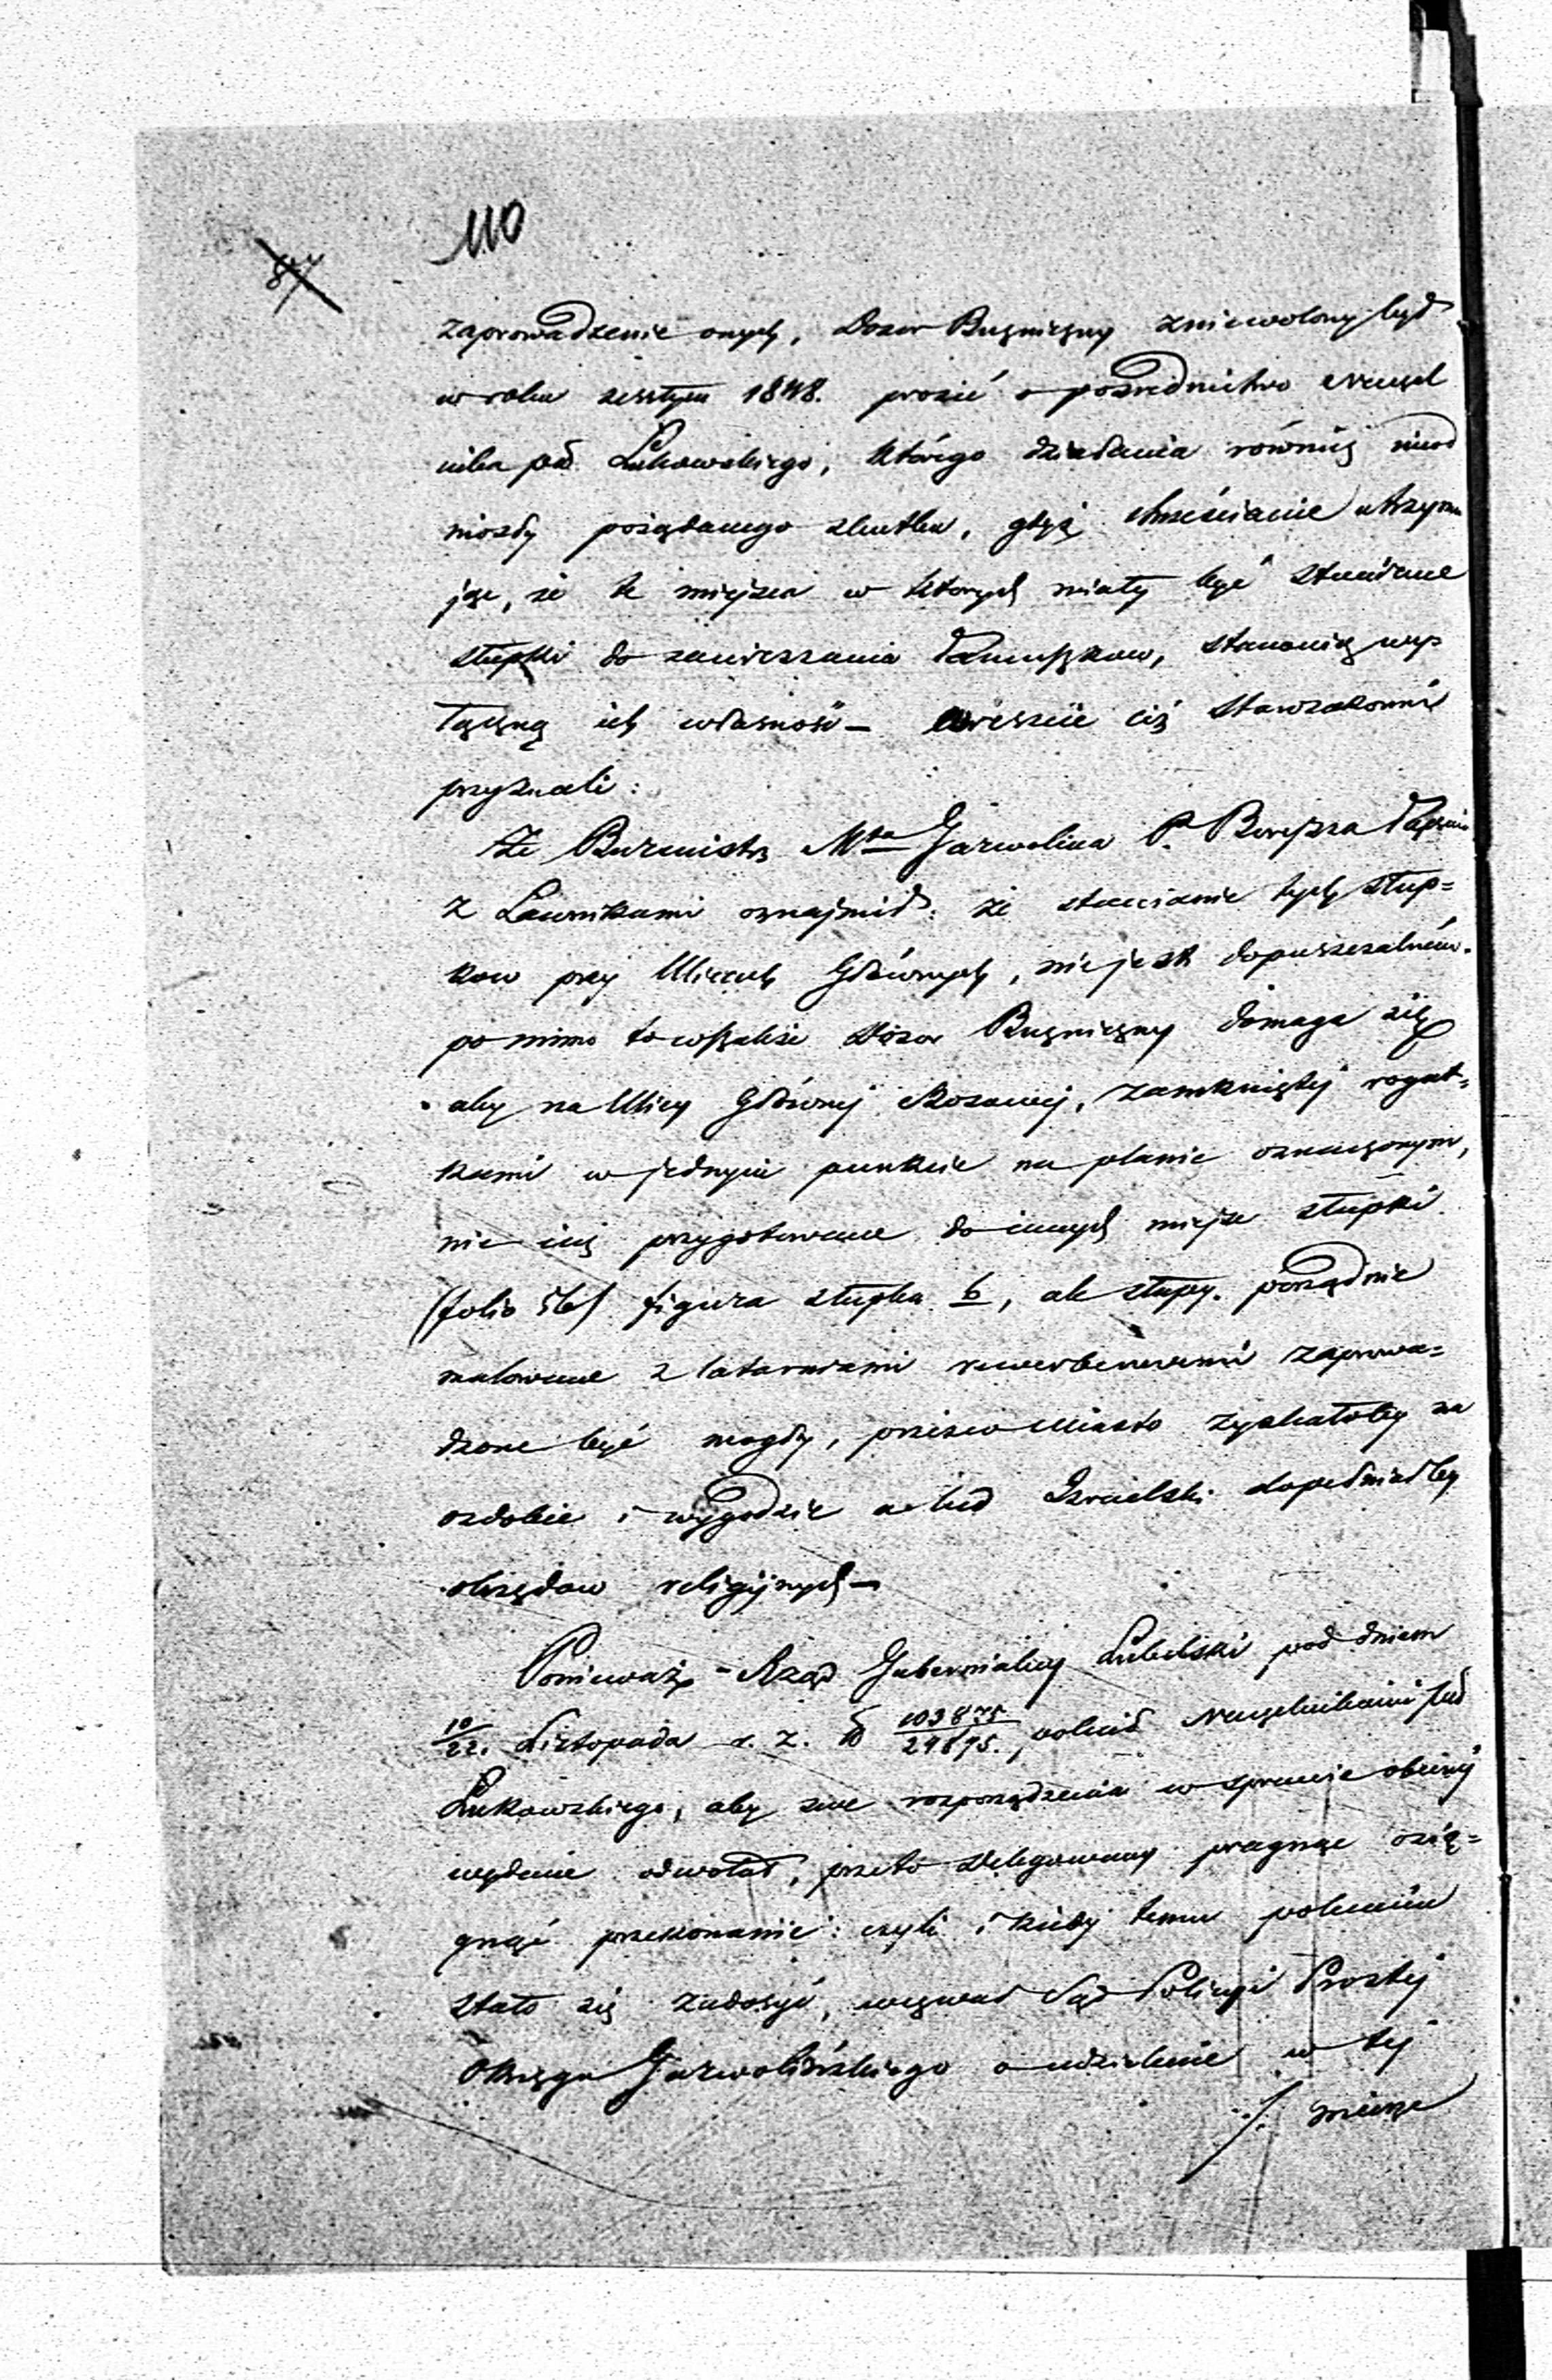 110
87
zaprowadzenie onych, Dozor Bużniczny zniewolony był
w roku zeszłym 1848. prosić o pośrednictwo Naczel
nika pow. Łukowskiego, którego działania równiéż nieod
niosły pożądanego skutku, gdyż chrześcianie utrzymu
jąc, że te miejsca w których miały być stawiane
słupki do zawieszania łańcuszkow, stanowią wyr
łączną ich własność – wreszcie ciż starozakonni
przyznali:
Że Burmistrz Mta Garwolina P. Borejsza łącznie
z Ławnikami oznajmił: że stawianie tych słup=
kow przy Ulicach Głównych, nie jest dopuszczalném.
pomimo to wszakże Dozor Bużniczny domaga się
aby na Ulicy Głównej, zamkniętej rogat=
kami w jednym punkcie na planie oznaczonym,
nie już przygotowane do innych miejsc słupki
(folio 56) figura słupka b, ale słupy porządnie
malowane z latarniami rewerberowemi zaprowa=
dzone być mogły, przezco Miasto zyskałoby na
ozdobie i wygodzie a lud Izraelski dopełniałby
obrzędow religijnych –
Ponieważ Rząd Gubernialny Lubelski pod dniem
10/22. Listopada r. z. N 103875/29895., polecił Naczelnikowi pod
Łukowskiego, aby swe rozporządzenia w sprawie obecnej
wydane odwołał, przeto Delegowany pragnąc osią=
gnąć przekonanie: czyli i kiedy temu poleceniu
stało się zadosyć, wezwał Sąd Policyi Prostej
Okręgu Garwolińskiego o udzielenie w tej
./. mierze